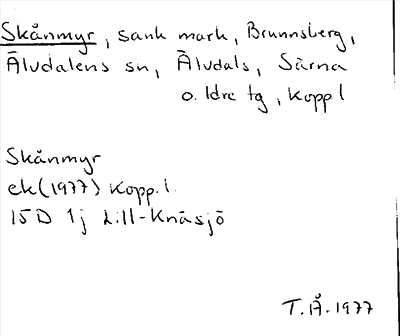 Skånmyr, sank mark, Brunnsberg,
Älvdalens sn, Älvdals, Särna
o. Idre tg, Kopp l
Skånmyr
ek (1977) Kopp. l.
15D 1j Lill-Knäsjö
T.Å. 1977